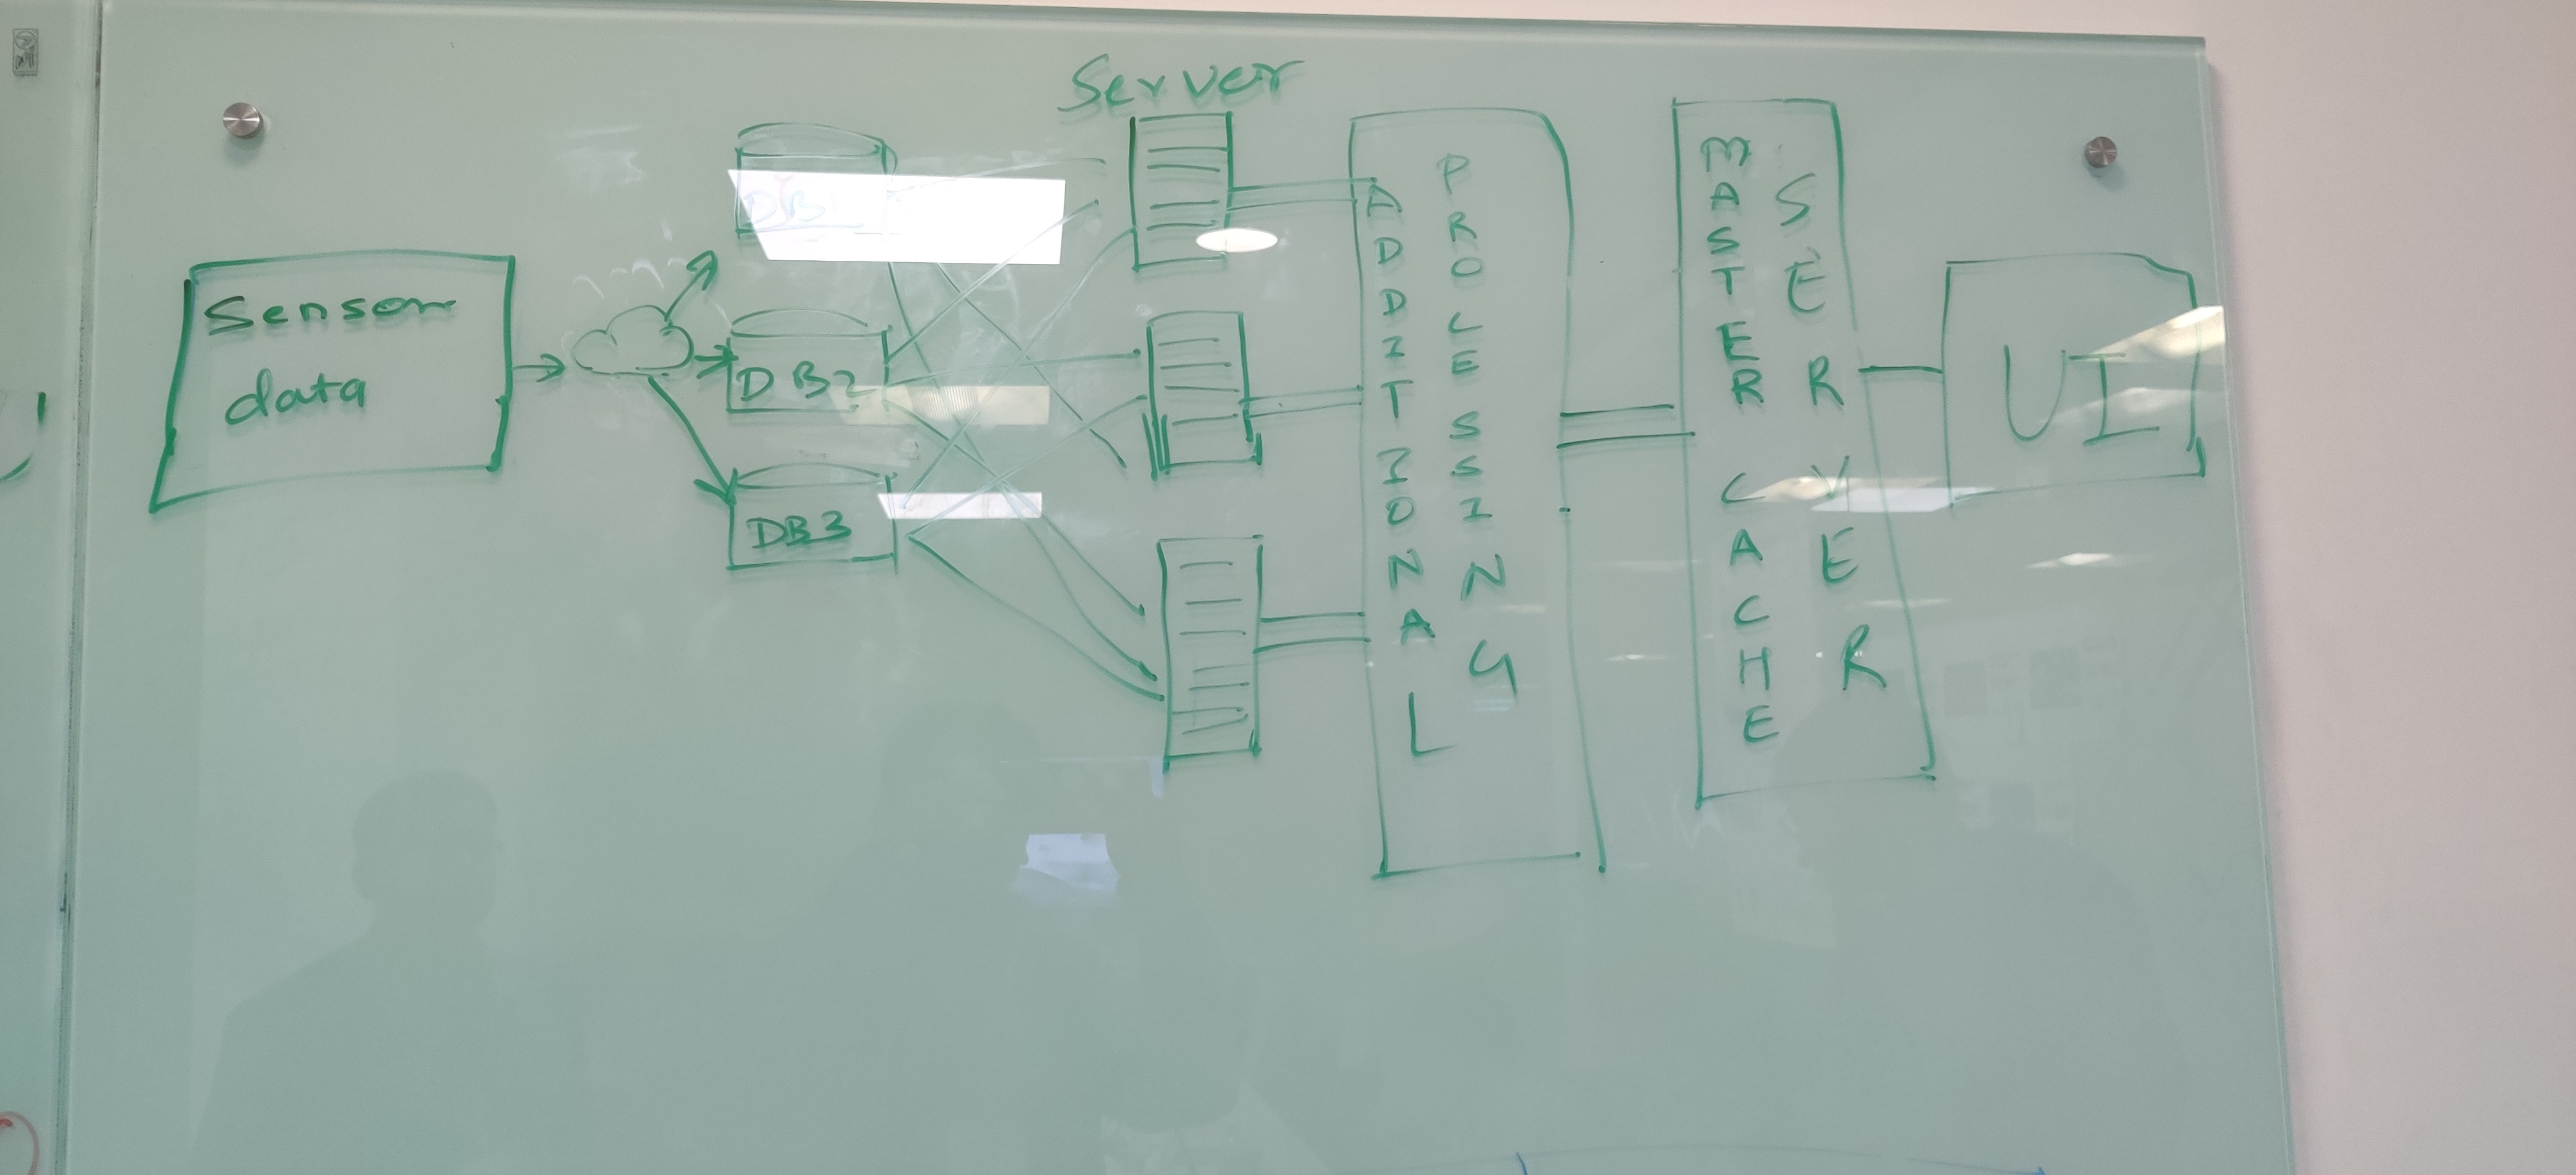 Server
Sensor
data
DB1
DB2
DB3
ADDITIONAL
PROCESSING
MASTER CACHE
SERVER
UI